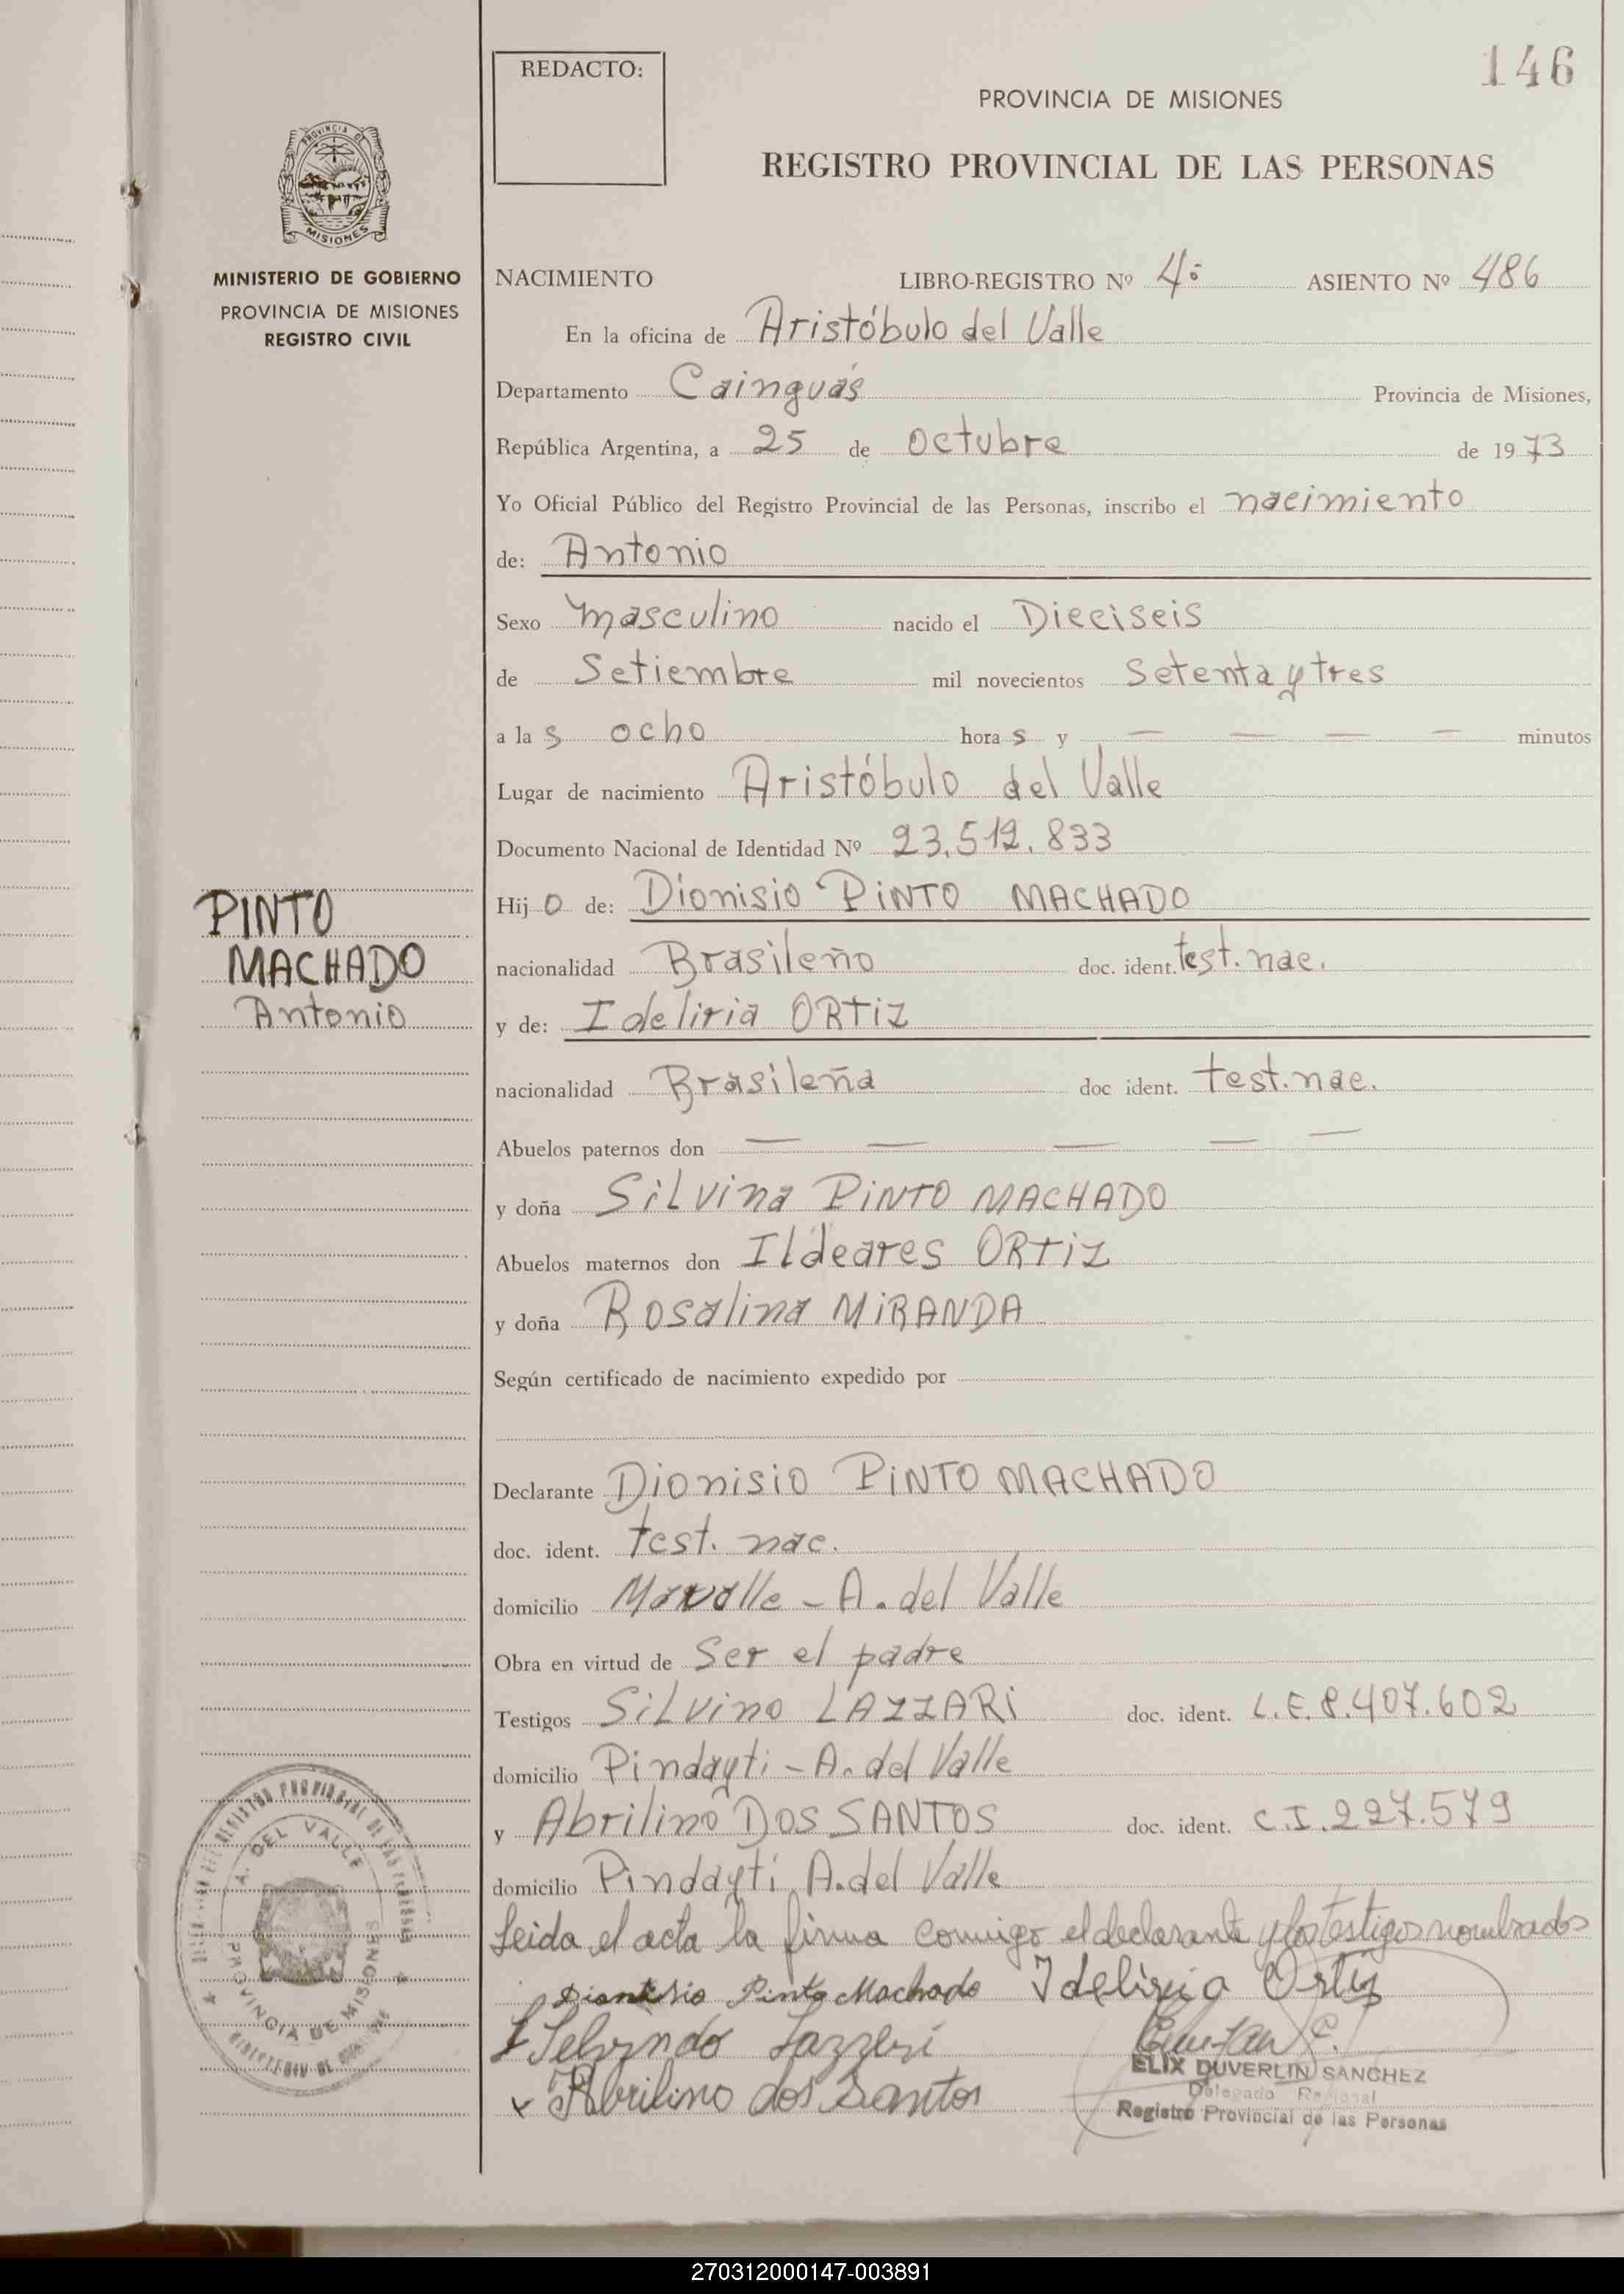 146
REDACTO:
PROVINCIA DE MISIONES
REGISTRO PROVINCIAL DE LAS PERSONAS
PROVINCIA DE
MISIONES
MINISTERIO DE GOBIERNO
PROVINCIA DE MISIONES
REGISTRO CIVIL
NACIMIENTO LIBRO-REGISTRO Nº 4º ASIENTO Nº 486
En la oficina de Aristóbulo del Valle
Departamento Cainguás Provincia de Misiones,
República Argentina, a 25 de octubre de 1973
Yo Oficial Público del Registro Provincial de las Personas, inscribo el nacimiento
de: Antonio
Sexo masculino nacido el Dieciseis
de Setiembre mil novecientos Setenta y tres
a las ocho horas y — — — — minutos
Lugar de nacimiento Aristóbulo del Valle
Documento Nacional de Identidad Nº 23.512.833
PINTO
MACHADO
Antonio
Hijo de: Dionisio PINTO MACHADO
nacionalidad Brasileño doc. ident. test. nac.
y de: Ideliria ORTIZ
nacionalidad Brasileña doc ident. test. nac.
Abuelos paternos don — — — — —
y doña Silvina PINTO MACHADO
Abuelos maternos don Ildeares ORTIZ
y doña Rosalina MIRANDA
Según certificado de nacimiento expedido por
Declarante Dionisio PINTO MACHADO
doc. ident. test. nac.
domicilio - A. del Valle
Obra en virtud de Ser el padre
Testigos Silvino LAZZARI doc. ident. L.E. 8.407.602
domicilio Pindayti - A. del Valle
y Abrilino DOS SANTOS doc. ident. C.I. 227.579
domicilio Pindayti A. del Valle
Leida el acta la firma conmigo el declarante y los testigos nombrados
Dionisio Pinto Machado Ideliria Ortiz
Lazzeri
Abrilino dos Santos
ELIX DUVERLIN SANCHEZ
Delegado Regional
Registro Provincial de las Personas
A. DEL VALLE
PROVINCIA DE MISIONES
270312000147-003891